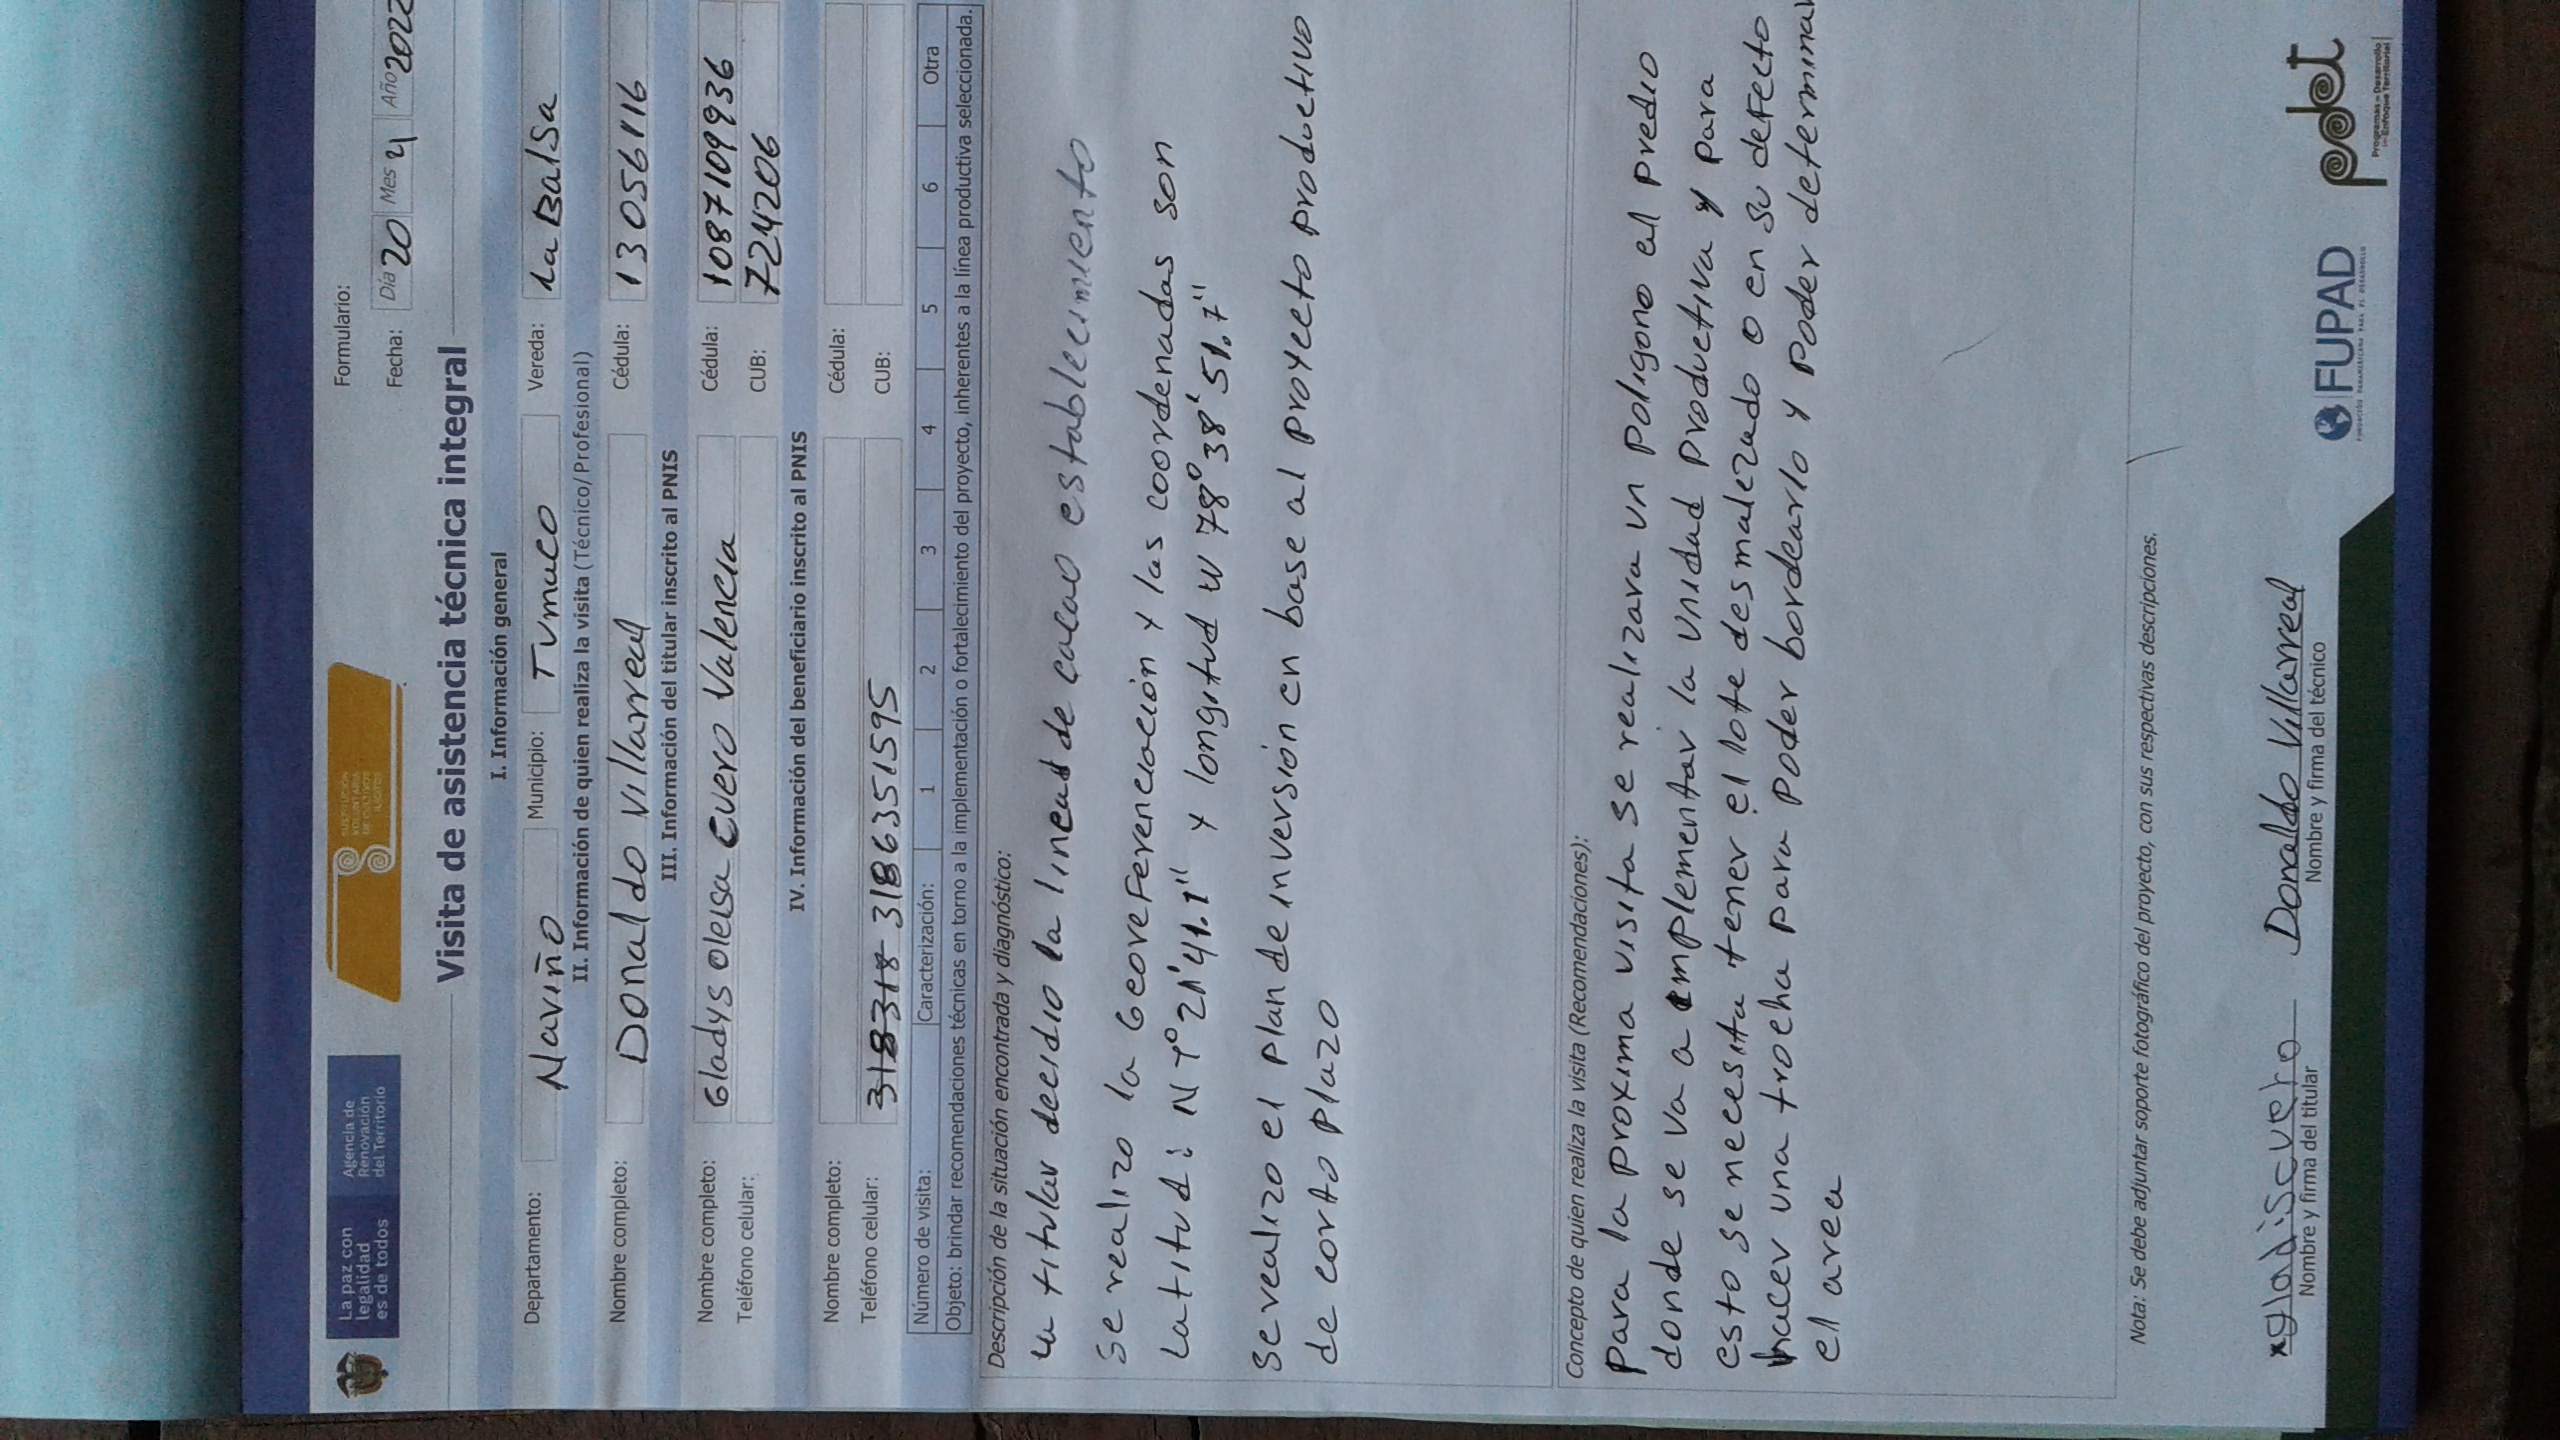 La paz con
legalidad
es de todos
Agencia de
Renovación
del Territorio
SUSTITUCIÓN
VOLUNTARIA
DE CULTIVOS
ILÍCITOS
Formulario:
Fecha: Día 20 Mes 4 Año 2022
Visita de asistencia técnica integral
I. Información general
Departamento: Nariño Municipio: Tumaco Vereda: La Balsa
II. Información de quien realiza la visita (Técnico/Profesional)
Nombre completo: Donaldo Villarreal Cédula: 13056116
III. Información del titular inscrito al PNIS
Nombre completo: Gladys Oleisa Cuero Valencia Cédula: 1087109936
Teléfono celular: CUB: 724206
IV. Información del beneficiario inscrito al PNIS
Nombre completo: Cédula:
Teléfono celular: 3186351595 CUB:
Número de visita: Caracterización: 1 2 3 4 5 6 Otra
Objeto: brindar recomendaciones técnicas en torno a la implementación o fortalecimiento del proyecto, inherentes a la línea productiva seleccionada.
Descripción de la situación encontrada y diagnóstico:
La titular decidio la linea de cacao establecimiento
Se realizo la Georeferenciación y las coordenadas son
Latitud: N 1° 21' 41.1" y longitud W 78° 38' 51.7"
Se realizo el plan de inversión en base al proyecto productivo
de corto plazo
Concepto de quien realiza la visita (Recomendaciones):
Para la proxima visita se realizara un poligono al predio
donde se va a implementar la unidad productiva y para
esto se necesita tener el lote desmalezado o en su defecto
hacer una trocha para poder bordearlo y poder determinar
el area
Nota: Se debe adjuntar soporte fotográfico del proyecto, con sus respectivas descripciones.
x gladiscuero Donaldo Villarreal
Nombre y firma del titular Nombre y firma del técnico
FUPAD
FUNDACIÓN PANAMERICANA PARA EL DESARROLLO
pdet
Programas de Desarrollo
con Enfoque Territorial